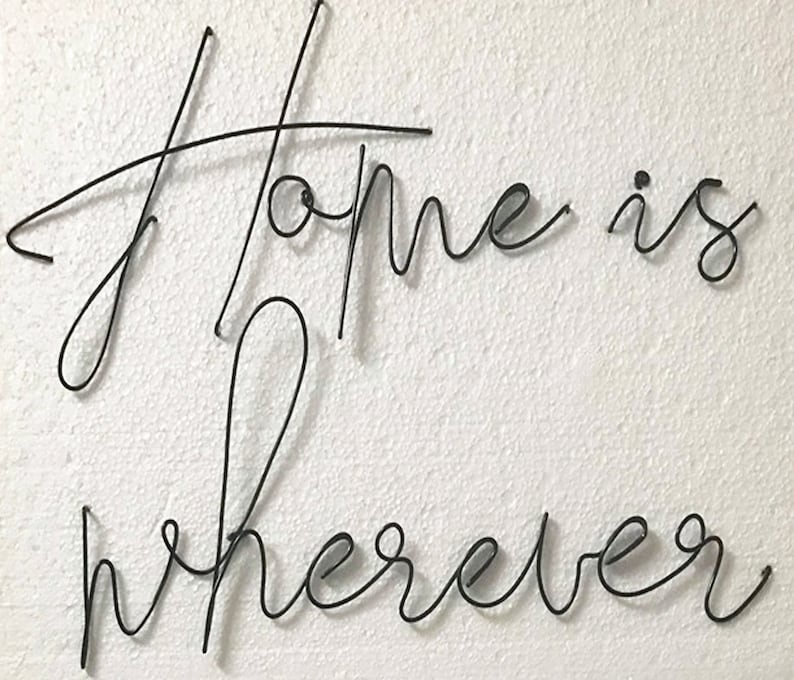 Home is
wherever